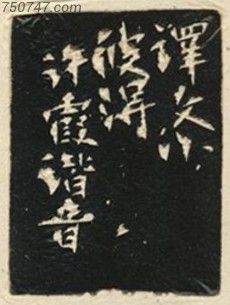 750747.com
譯文小
彼得
许霞谐音